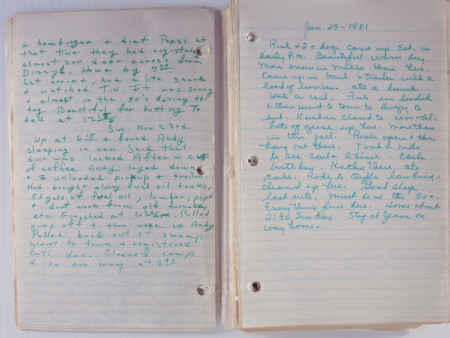 a hamburger & diet Pepsi. at
that time they had registered
almost 200 deer across from
Dizzy's. Home by 9
bit around, had a lite snack
& watched T.V. It was sunny
& almost in the 50's during the
day. Beautiful for hunting To
bed at 12
Sun. Nov 23rd
Up at 6 & found Andy
sleeping in van. Said that
door was locked After a cup
of coffee Andy layed down
& unloaded pickup & trailer.
Had brought along fuel oil tanks,
55 gals. of fuel oil, lumber, pipe
& duct work from old furnace,
etc Finished at 10 Pulled
pump off & then woke up Andy
Pulled boat out of swamp.
Went to town & registered
both deer. Cleaned camp
& on our way at 2
Jan. 25-1981
Rick & 2 dogs came up Sat. in
early P.M. Beautiful warm day.
More snow in than here.
Came up in truck & trailer with a
load of lumber. Ate a lunch
took a rest. Rick un loaded
& then went to town to Dizzy's to
eat. Kitchen closed to
Lots of up here. More than
in the fall. Route open & they
hang out there. Took a ride
to see Carl
both busy. Kathy there also
Rode to
cleaned up here. Good sleep
last nite. Must be in the 50's.
Everything fine here. Home about
2:30 Sunday. Stop at Jeans on
way home.